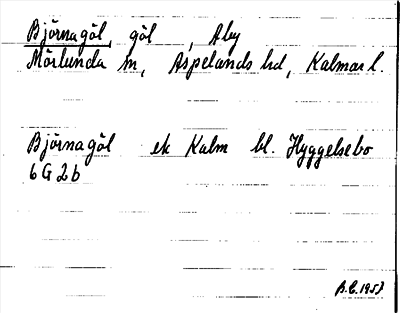 Björnagöl, göl, Åby
Mörlunda sn, Aspelands hd, Kalmar l.
Björnagöl ek Kalm bl. Hyggelsebo
6G 2b